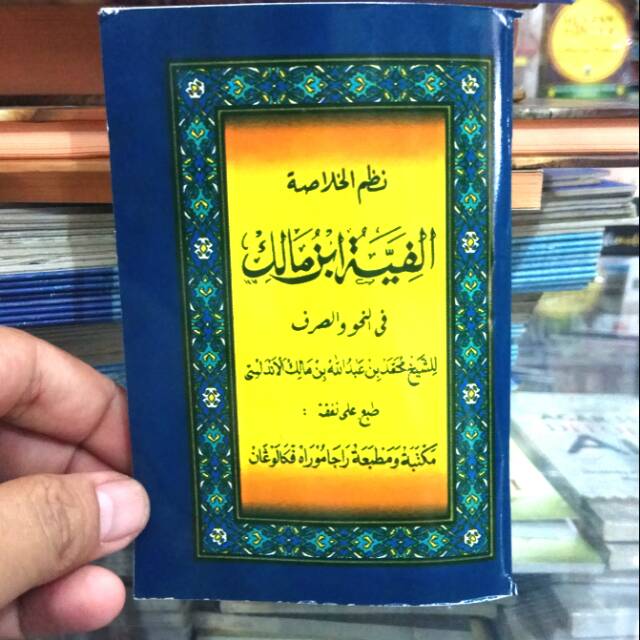 نظم الخلاصة
اَلْفِيَّةُ ابْنُ مَالِكْ
فى النحو والصرف
لِلشَّيْخِ مُحَمَّدْ بِنْ عَبْدُ اللهْ بِنْ مَالِكْ لْاَنْدَلُسِى
طبع على نفقة :
مَكْتَبَةْ وَمَطْبَعَةْ رَاجَامُوْرَاهْ فكالَوْڠَانْ